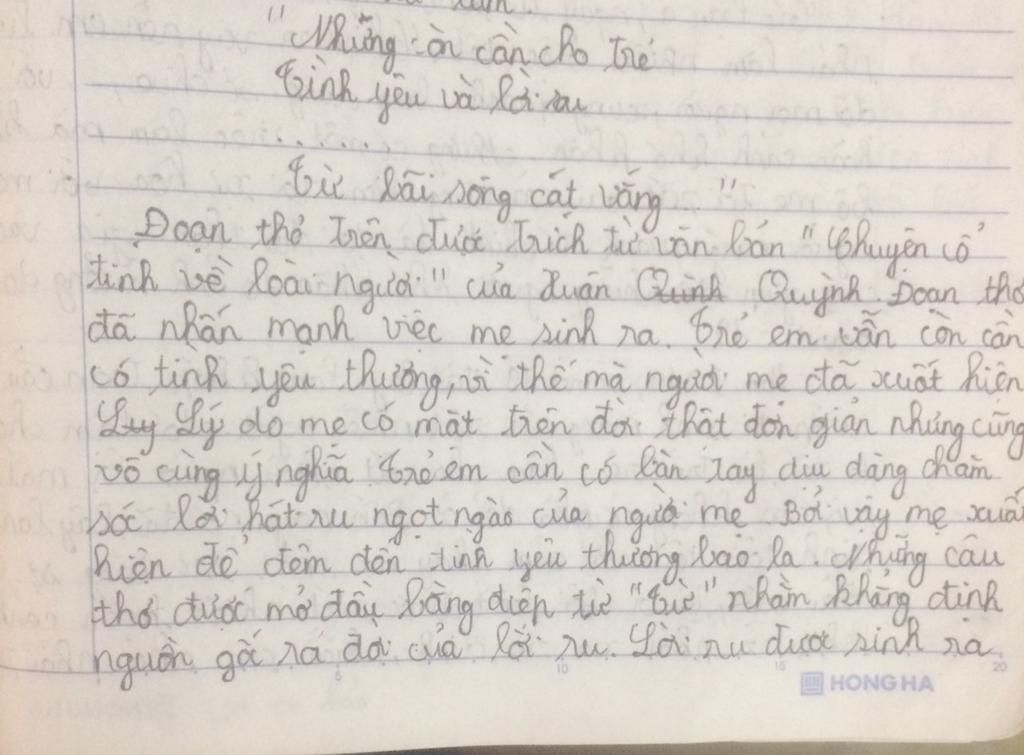 "Những còn cần cho trẻ
Tình yêu và lời ru
.......
Từ bãi sông cát vắng"
Đoạn thở trên được trích từ văn bán "Chuyện cổ
tinh về loài người" của Xuân Quình Quỳnh. Đoạn thơ
đã nhấn mạnh việc mẹ sinh ra. Trẻ em vẫn còn cần
có tình yêu thương, vì thế mà người mẹ đã xuất hiện
Luy Lý do mẹ có mặt trên đời thật đơn giản nhưng cũng
vô cùng ý nghĩa trẻ em cần có bàn ray dịu dàng chăm
sóc lời hát ru ngọt ngào của người mẹ Bởi vậy mẹ xuất
hiện để đêm đến tình yêu thương bao la. Những câu
thơ được mở đầu bằng điệp từ "từ" nhằm khẳng định
nguồn gố ra đời của lời ru. Lời ru được sinh ra
5 10 15 20
HONG HA